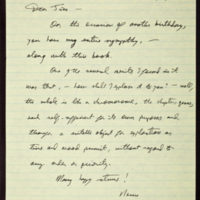 Dear Jim —
On the occasion of another birthday,
you have my entire sympathy, —
along with this book.
One of the several merits I found in it
was that, — how shall I explain it to you? — well,
the whole is like a chromosome, the chapters genes,
each self-apparent for its own purposes and
therefore, a suitable object for exploration as
time and mood permit, without regard to
any order or priority.
Many happy returns!